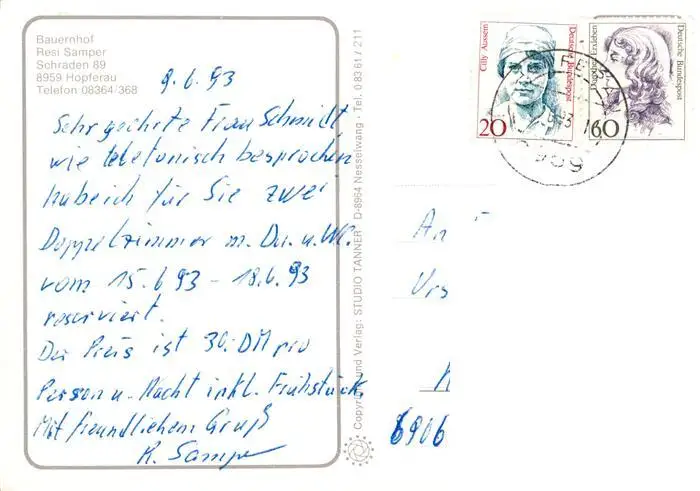 Bauernhof
Resi Samper
Schraden 89
8959 Hopferau
Telefon 08364/368
9.6.93
Sehr geehrte Frau Schmidt
wie telefonisch besprochen
habe ich für Sie zwei
Doppelzimmer m. Du. u. WC.
vom 15.6.93 - 18.6.93
reserviert.
Der Preis ist 30.- DM pro
Person u. Nacht inkl. Frühstück.
Mit freundlichem Gruß
R. Samper
Copyright und Verlag: STUDIO TANNER · D-8964 Nesselwang · Tel. 08361/211
Cilly Aussem
Deutsche Bundespost
20
Deutsche Bundespost
60
8959
An
Urs
6906